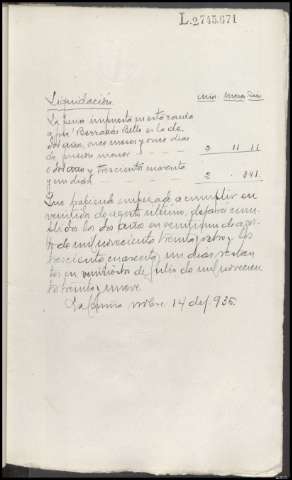 L.2745.671
Liquidación. Años Meses Días
La pena impuesta
a José Barrabés Bello es la de
dos años, once meses y once días
de prisión menor 2 11 11
o dos años y trescientos cuarenta
y un días 2 - 341
Que habiendo empezado a cumplir en
veintiuno de agosto último, dejará cumplidos
los dos años en veintiuno de agosto
de mil novecientos treinta y ocho y los
trescientos cuarenta y un días restantes
en veintiocho de julio de mil novecientos
treinta y nueve.
14 de 1936